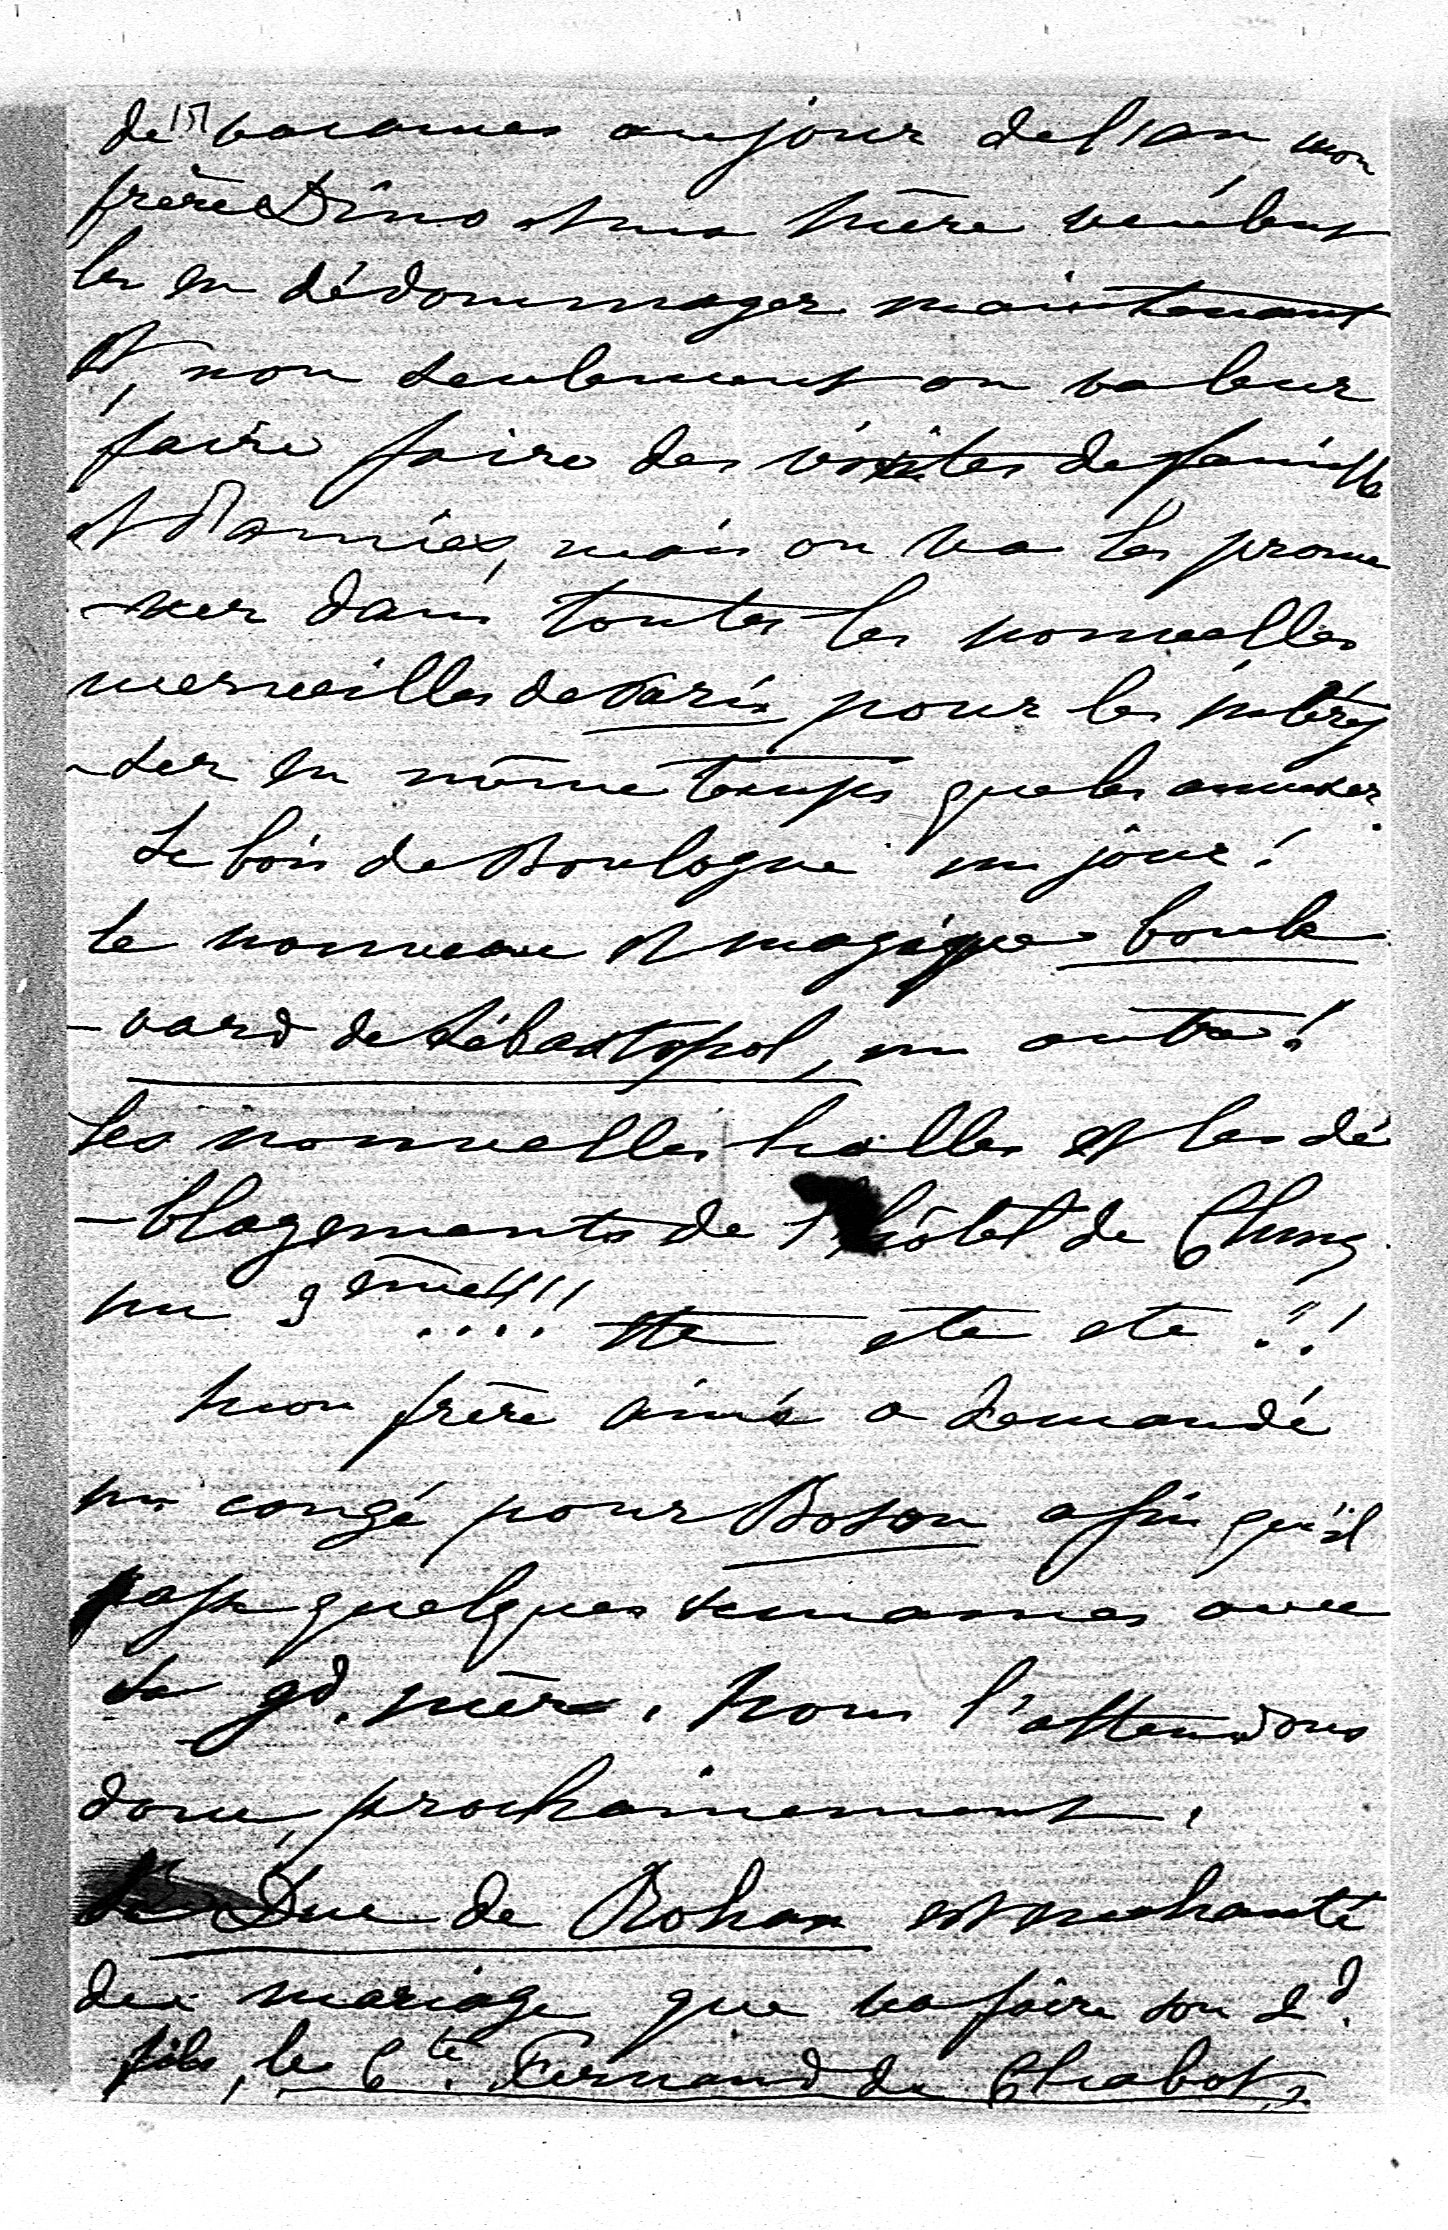 de vacances au jour de l'an mon
frère Dino et ma mère veulent
les en dédommager maintenant
et, non seulement on va leur
faire faire des visites de famille
et d'amies, mais on va les prome
-ner dans toutes les nouvelles
merveilles de Paris pour les intéres
-ser en même temps que les amuser.
Le bois de Boulogne un jour!
le nouveau et magique boule
-vard de Sébastopol, un autre!
Les nouvelles halles et les dé
-blagements de l'hôtel de Cluny
un 3ème!!!! etc etc etc !!
Mon frère ainé a demandé
un congé pour Boson afin qu'il
passe quelques semaines avec
sa gd. mère. Nous l'attendons
donc prochainement.
Le Duc de Rohan est enchanté
du mariage que va faire son 2d.
fils, le Cte. Fernand de Chabot,